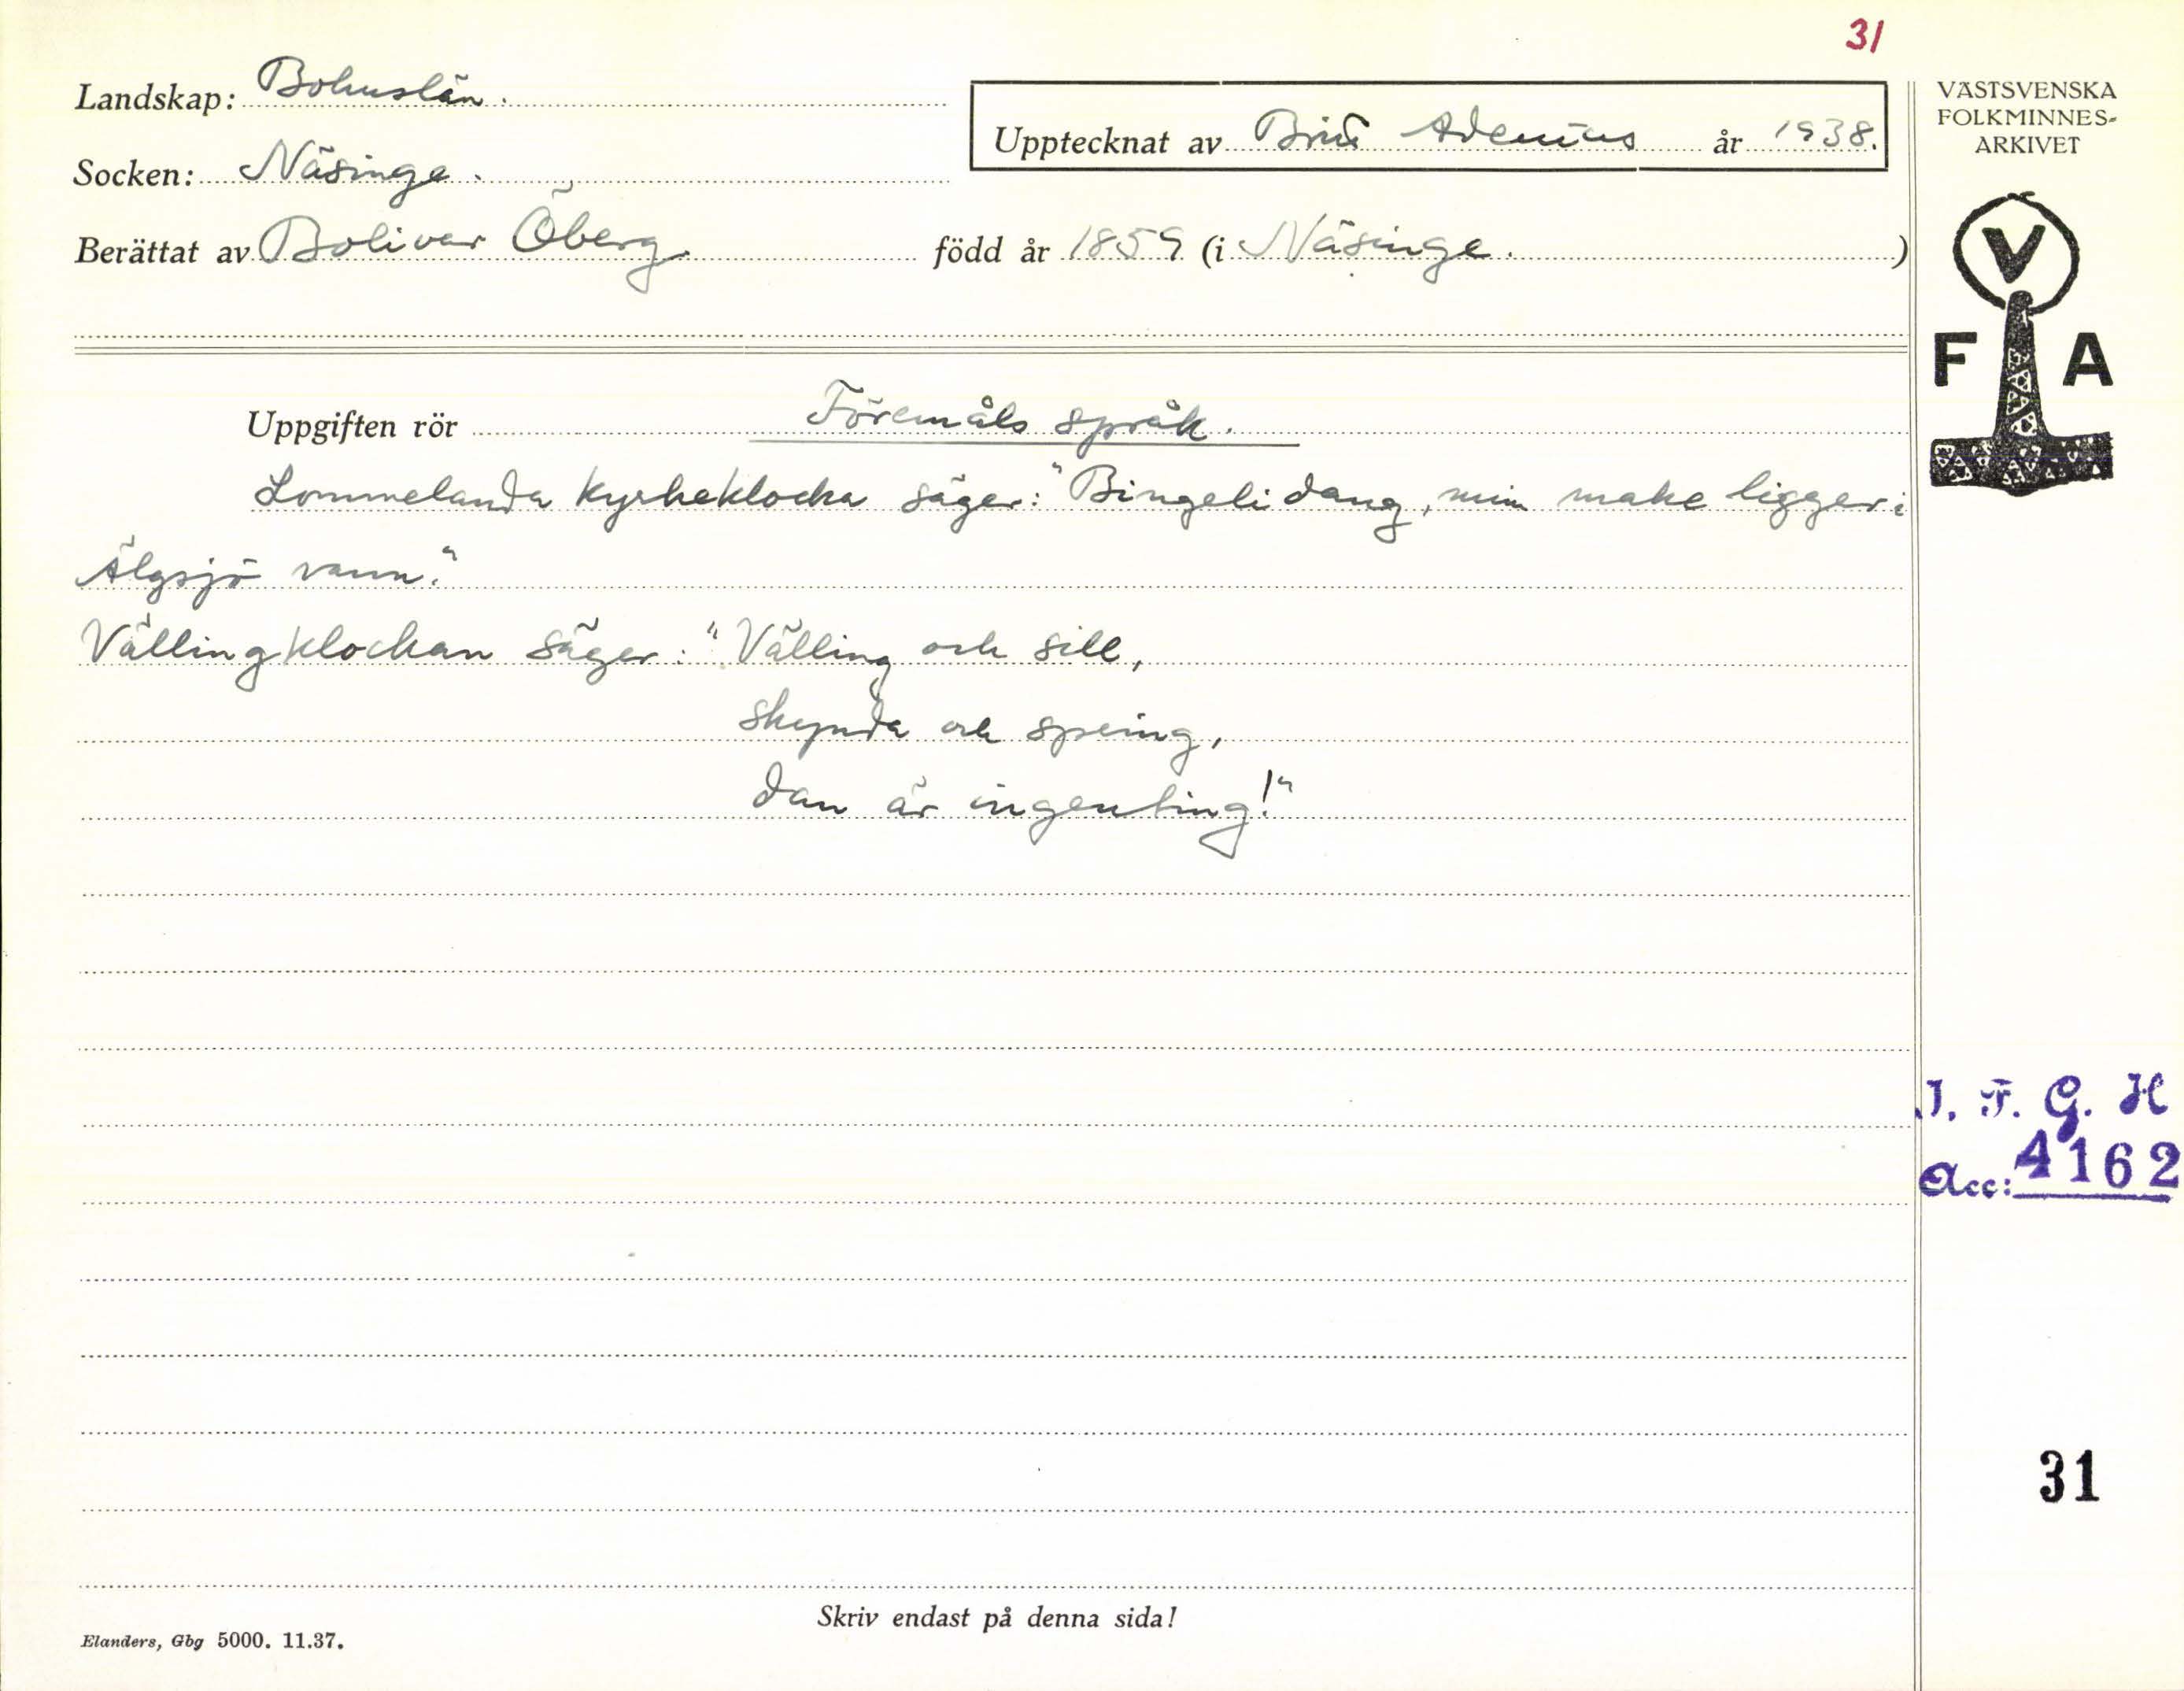 31
Landskap: Bohuslän.
Upptecknat av Brita Adenius år 1938.
Socken: Näsinge.
Berättat av Bolivar Öberg född år 1859 (i Näsinge.)
VÄSTSVENSKA
FOLKMINNES-
ARKIVET
V
F A
Uppgiften rör Föremåls språk.
Lommelanda kyrkeklocka säger: "Bingeli dang, min make ligger i
Älgsjö vann."
Vällingklockan säger: "Välling och sill,
skynda och spring,
dan är ingenting!"
I. F. G. H
Acc: 4162
31
Skriv endast på denna sida!
Elanders, Gbg 5000. 11.37.